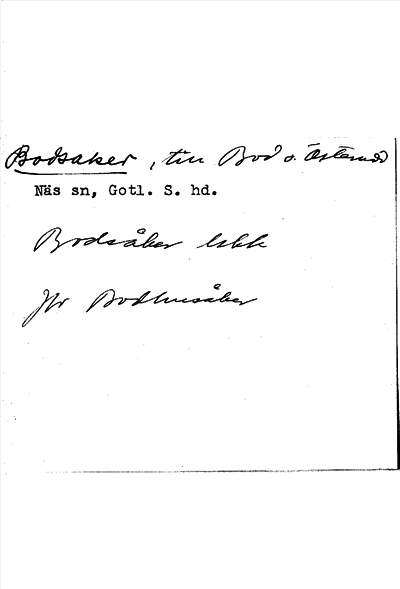 Bodsaker, till Bod o. Österud
Näs sn, Gotl. S. hd.
Bodsåker lskk
Jfr Bodhusåker